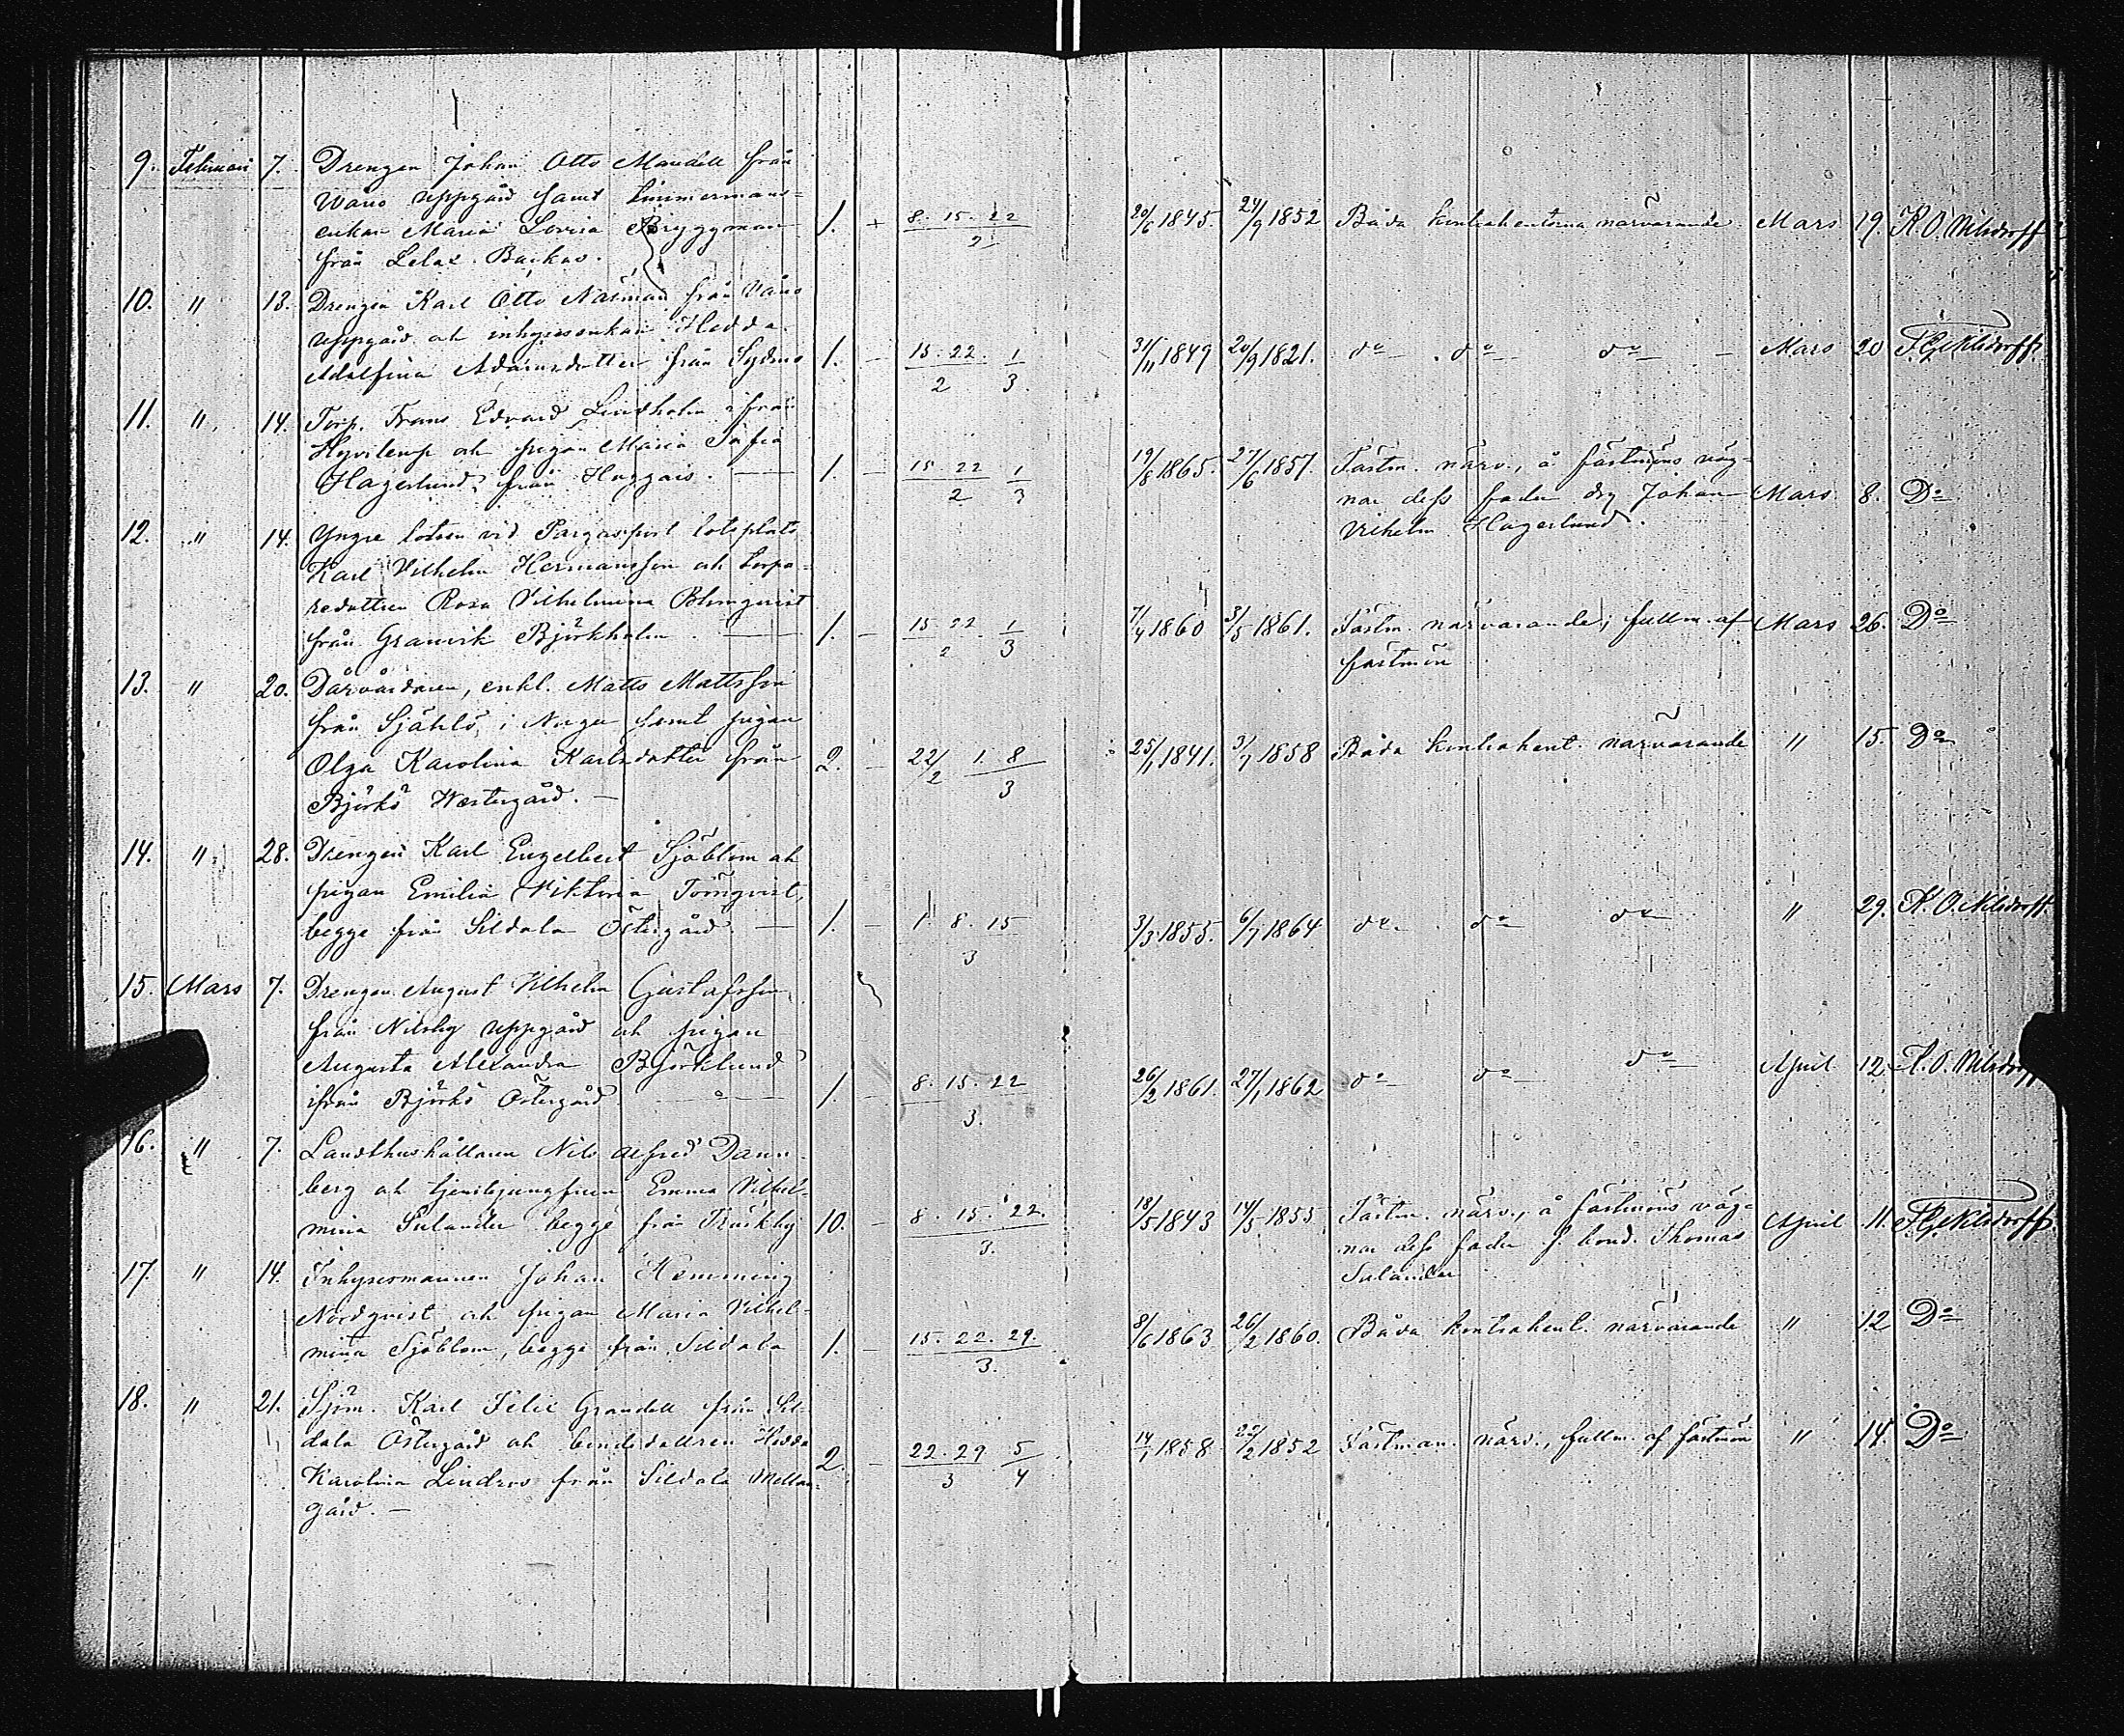 9. Februari 7. Drengen Johan Otto Mandell från
Wånö uppgård samt timmermans-
enkan Maria Lovisa Bryggman 1. 8. 15. 22 / 2 20/6 1845. 24/9 1852 Båda kontrahenterna närvarande Mars 19. K.O. Nilsdorff
från Lelax Backas.
10. " 13. Drengen Karl Otto Näsman från Vånö
uppgård och inhysesenkan Hedda
Adolfina Adamsdotter från Sydmo 1. — 15. 22. / 2 1 / 3 31/11 1849 20/9 1821. do do do — Mars 20
11. " 14. Torp. Frans Edvard Lindholm ifrån
Hyvilemp och pigan Maria Sofia
Hagerlund från Haggais. — 1. — 15. 22 / 2 1 / 3 19/8 1865. 27/6 1857. Fästm. närv., å fästmöns väg-
nar dess fader drg Johan Mars 8. Do
Vilhelm Hagerlund.
12. " 14. Yngre lotsen vid Pargasport lotsplats
Karl Vilhelm Hermansson och torpa-
redottren Rosa Vilhelmina Blomqvist
från Granvik Björkholm. — 1. — 15. 22. / 2 1 / 3 7/4 1860 3/5 1861. Fästm. närvarande, fullm. af Mars 26. Do
fästmön
13. " 20. Dårvårdaren, enkl. Matts Mattsson
från Själö i Nagu samt pigan
Olga Karolina Karlsdotter från 2. — 22/2 1. 8 / 3 25/1 1841. 3/7 1858 Båda kontrahent. närvarande " 15. Do
Björkö Westergård. —
14. " 28. Drengen Karl Engelbert Sjöblom och
pigan Emilia Viktoria Törnqvist,
begge från Sildala Östergård — 1. — 1. 8. 15 / 3 3/3 1855. 6/7 1864 do do do " 29. K.O. Nilsdorff.
15. Mars 7. Drengen August Vilhelm Gustafsson
från Nilsby uppgård och pigan
Augusta Alexandra Björklund
ifrån Björkö Östergård. — 1. — 8. 15. 22 / 3. 26/2 1861. 27/1 1862 do do do April 12. K.O. Nilsdorff
16. " 7. Landthushållaren Nils Alfred Dann-
berg och tjenstejungfrun Emma Vilhel-
mina Sulander begge från Kråkby 10. — 8. 15. 22. / 3. 18/5 1843 14/5 1855 Fästm. närv., å fästmöns väg-
nar dess fader f. bond. Thomas April 11.
Sulander
17. " 14. Inhysesmannen Johan Hemming
Nordqvist och pigan Maria Vilhel-
mina Sjöblom, begge från Sildala 1. — 15. 22. 29. / 3. 8/6 1863 26/2 1860. Båda kontrahent. närvarande " 12 Do
18. " 21. Sjöm. Karl Felix Grandell från Sil-
dala Östergård och bondedottren Hedda
Karolina Lindros från Sildala Mellan- 2. — 22. 29 / 3 5 / 4 14/1 1858. 25/2 1852 Fästman. närv., fullm. af fästmön " 14. Do
gård. —